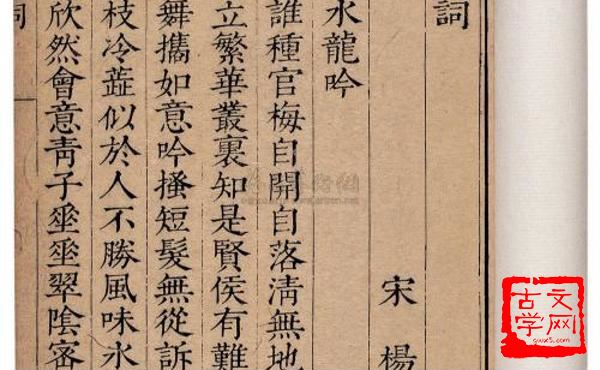 詞
宋 楊
水龍吟
誰種官梅自開自落清無地
立繁華叢裏知是賢侯有難
舞攜如意吟搔短髮無從訴
枝冷蕋似於人不勝風味水
欣然會意靑子埀埀翠陰密
詞
古文
学网